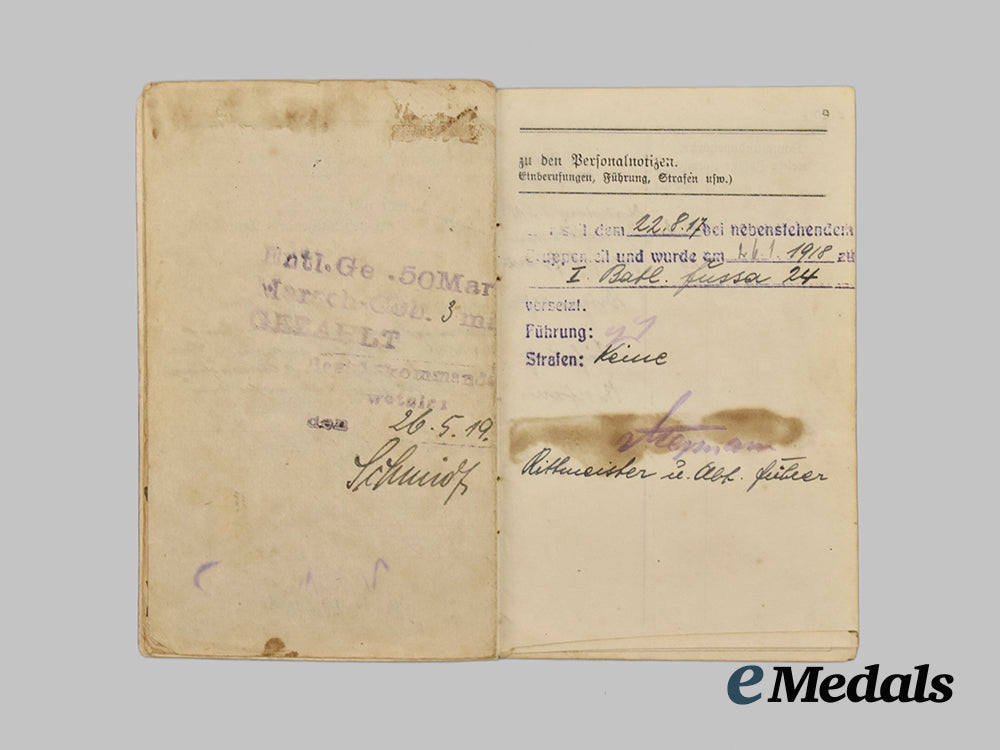 Entl.Ge .50Mar
Marsch-Geb. 3 m
GEZAHLT
Bezirkskommando
Wetzlar
den 26.5.19.
Schmidt
9
zu den Personalnotizen.
Einberufungen, Führung, Strafen usw.)
dem 22.8.17 bei nebenstehendem
Truppenteil und wurde am 1918 zu
I Batl. fussa 24
versetzt.
Führung:
Strafen: Keine
Rittmeister u. Abt. führer
eMedals